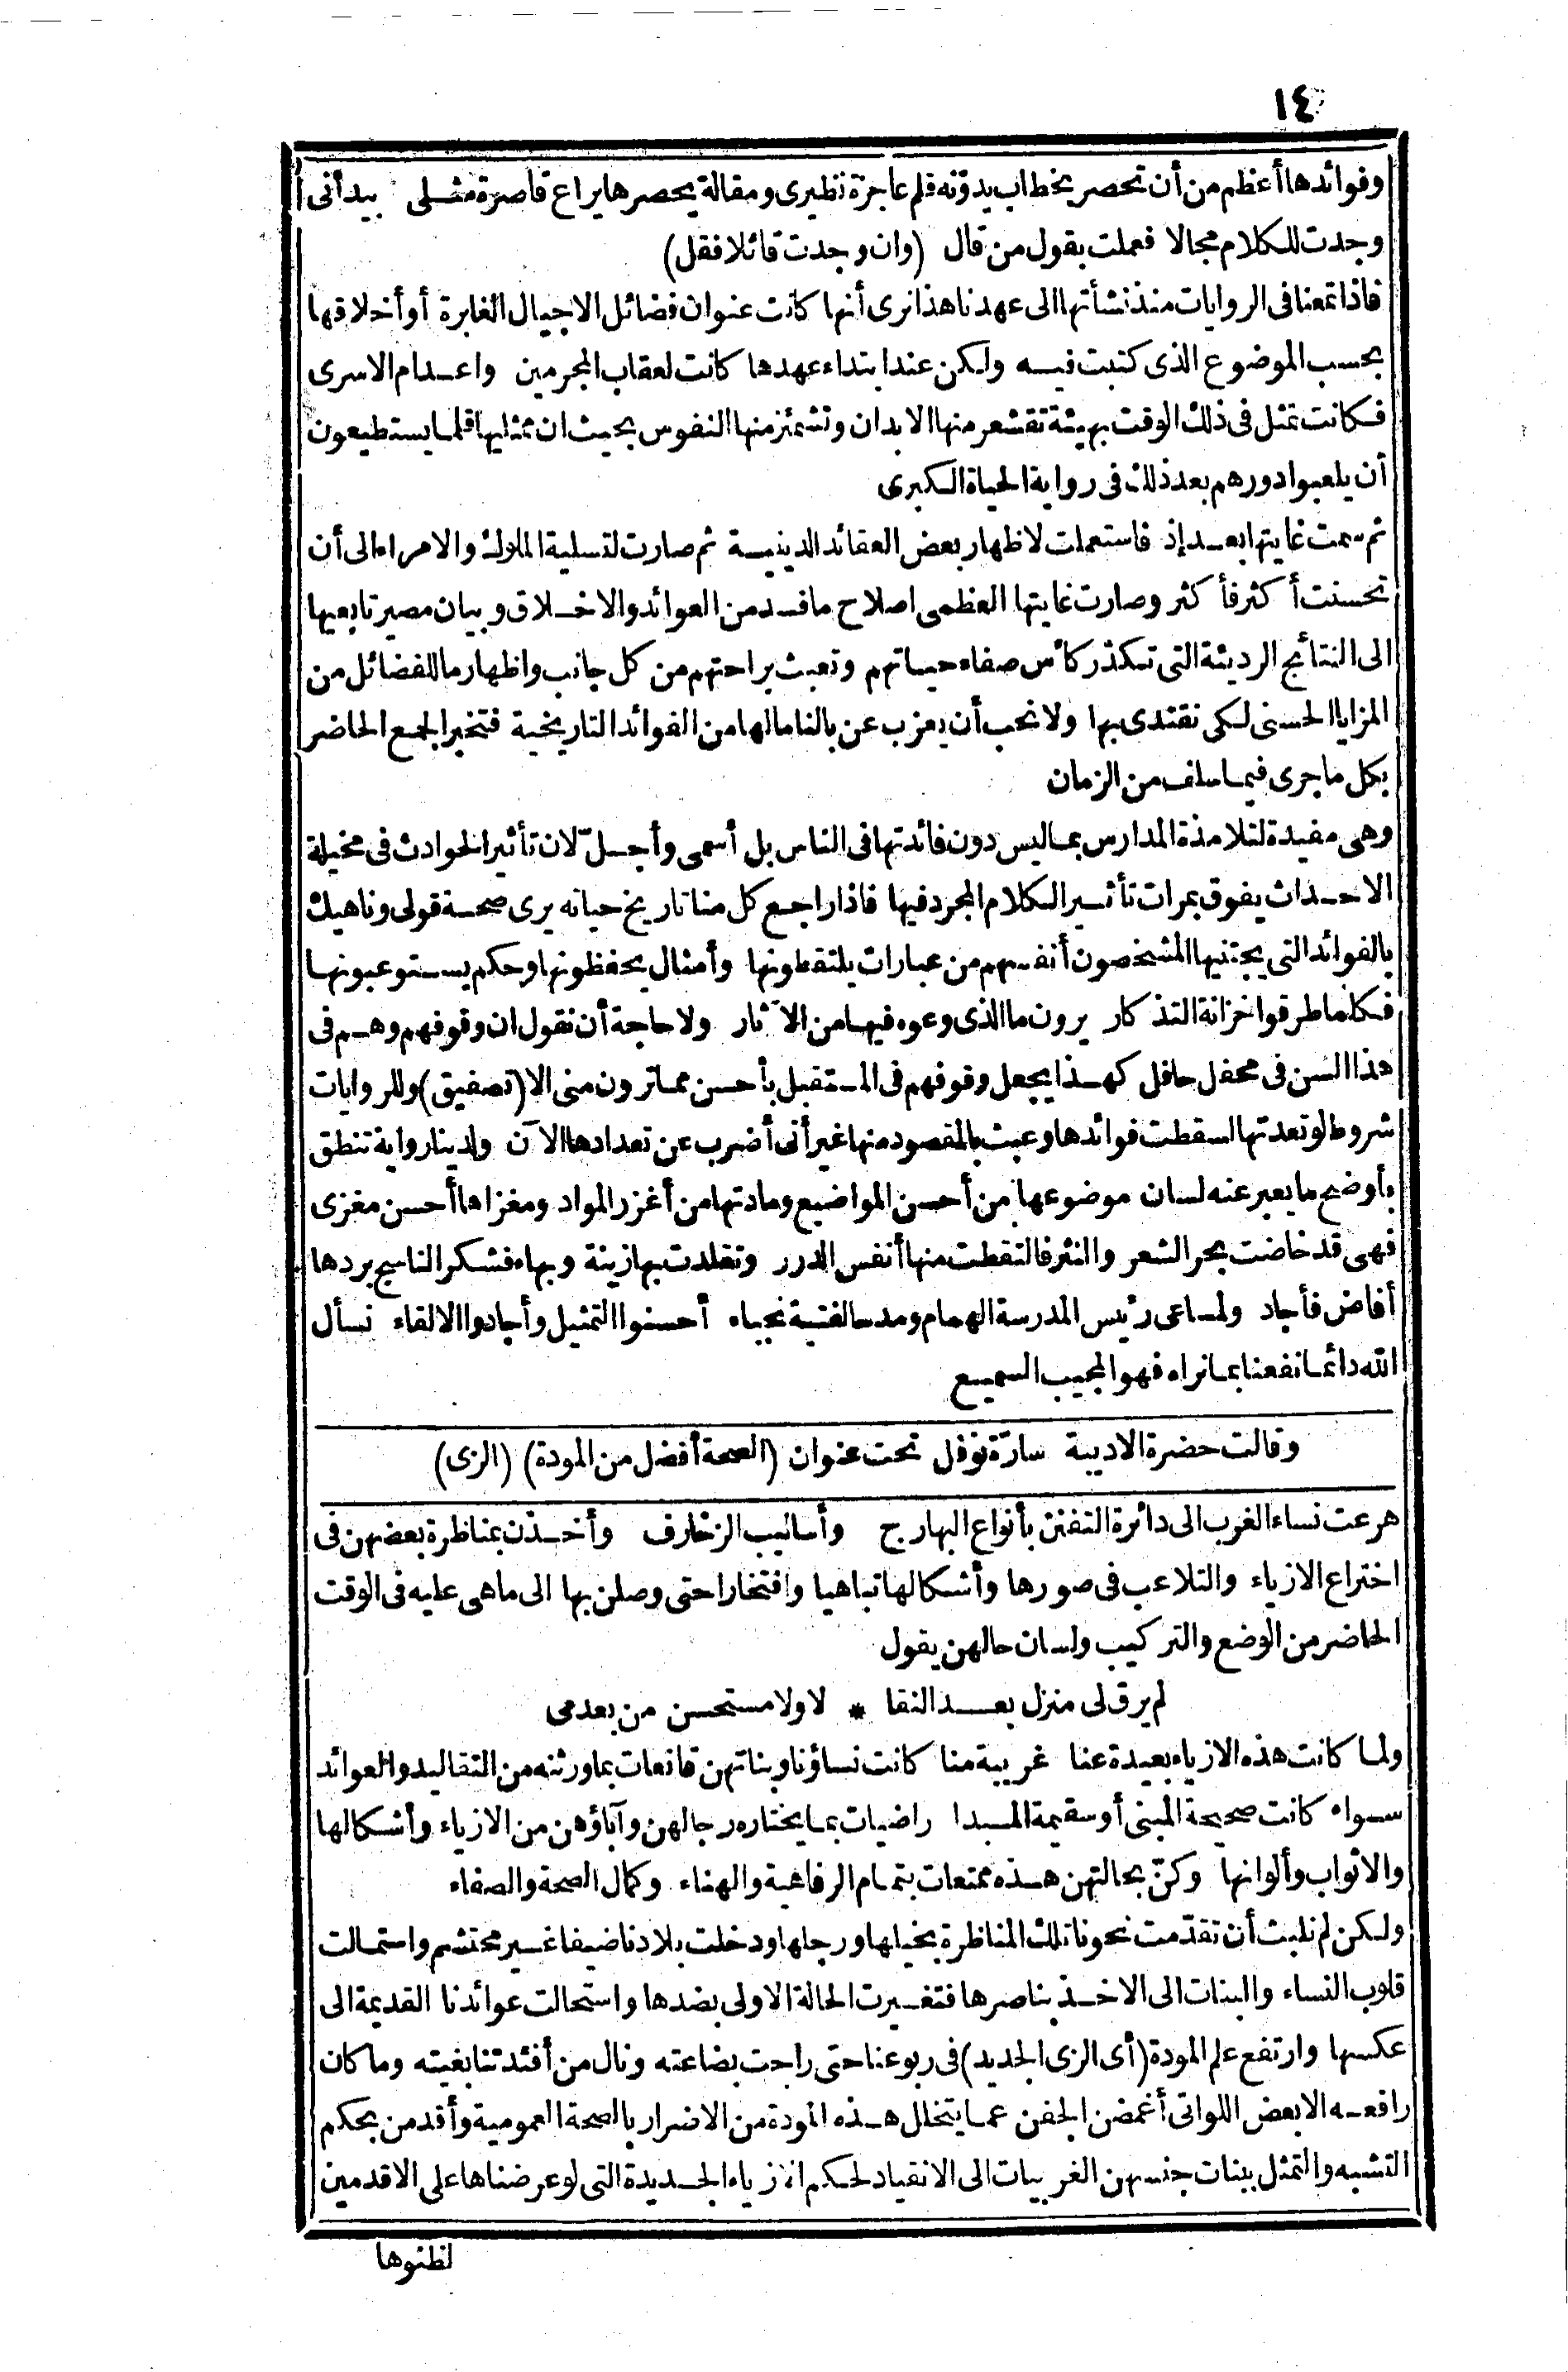 ١٤
وفوائدها أعظم من أن تحصر بخطاب يدوّنه قلم عاجزة نظيرى ومقالة يحصرها يراع قاصرة مثلى بيد أنى
وجدت للكلام مجالا فعملت بقول من قال (وان وجدت قائلا فقل)
فاذا تمعنا فى الروايات منذ نشأتها الى عهدنا هذا نرى أنها كانت عنوان فضائل الاجيال الغابرة أو أخلاقها
بحسب الموضوع الذى كتبت فيه ولكن عند ابتداء عهدها كانت لعقاب المجرمين واعدام الاسرى
فكانت تمثل فى ذلك الوقت بهيئة تقشعر منها الابدان وتشمئز منها النفوس بحيث ان ممثليها قلما يستطيعون
أن يلعبوا دورهم بعد ذلك فى رواية الحياة الكبرى
ثم سمت غايتها بعد إذ فاستعملت لاظهار بعض العقائد الدينية ثم صارت لتسلية الملوك والامراء الى أن
تحسنت أكثر فأكثر وصارت غايتها العظمى اصلاح ما فسد من العوائد والاخلاق وبيان مصير تابعيها
الى النتائج الرديئة التى تكدّر كأس صفاء حياتهم وتعبث براحتهم من كل جانب واظهار ما للفضائل من
المزايا الحسنى لكى نقتدى بها ولا نحب أن يعزب عن بالنا ما لها من الفوائد التاريخية فتخبر الجمع الحاضر
بكل ما جرى فيما سلف من الزمان
وهى مفيدة لتلامذة المدارس بما ليس دون فائدتها فى الناس بل أسمى وأجلّ لان تأثير الحوادث فى مخيلة
الاحداث يفوق بمرات تأثير الكلام المجرد فيها فاذا راجع كل منا تاريخ حياته يرى صحة قولى وناهيك
بالفوائد التى يجتنيها المشخصون أنفسهم من عبارات يلتقطونها وأمثال يحفظونها وحكم يستوعبونها
فكلما طرقوا خزانة التذكار يرون ما الذى وعوه فيها من الآثار ولا حاجة أن نقول ان وقوفهم وهم فى
هذا السن فى محفل حافل كهذا يجعل وقوفهم فى المستقبل بأحسن مما ترون منى الا (تصفيق) وللروايات
شروط لو تعدتها لسقطت فوائدها وعبث بالمقصود منها غير أنى أضرب عن تعدادها الآن ولدينا رواية تنطق
بأوضح ما يعبر عنه لسان موضوعها من أحسن المواضيع ومادتها من أغزر المواد ومغزاها أحسن مغزى
فهى قد خاضت بحر الشعر والنثر فالتقطت منها أنفس الدرر وتقلدت بها زينة وبهاء فشكر الناسج بردها
أفاض فأجاد ولمساعى رئيس المدرسة الهمام ومدحا لفتية نجباء أحسنوا التمثيل وأجادوا الالقاء نسأل
الله دائما نفعنا بما نراه فهو المجيب السميع
وقالت حضرة الاديبة سارّة نوفل تحت عنوان (الصحة أفضل من المودة) (الزى)
هرعت نساء الغرب الى دائرة التفنن بأنواع البهارج وأساليب الزخارف وأخذن بمناظرة بعضهن فى
اختراع الازياء والتلاعب فى صورها وأشكالها تباهيا وافتخارا حتى وصلن بها الى ما هى عليه فى الوقت
الحاضر من الوضع والتركيب ولسان حالهن يقول
لم يرق لى منزل بعد النقا * لا ولا مستحسن من بعد مى
ولما كانت هذه الازياء بعيدة عنا غريبة منا كانت نساؤنا وبناتهن قانعات بما ورثنه من التقاليد والعوائد
سواء كانت صحيحة المبنى أو سقيمة المبدا راضيات بما يختاره رجالهن وآباؤهن من الازياء وأشكالها
والاثواب وألوانها وكنّ بحالتهن هذه ممتعات بتمام الرفاهية والهناء وكمال الصحة والصفاء
ولكن لم نلبث أن تقدّمت نحونا تلك المناظرة بخيلها ورجلها ودخلت بلادنا ضيفا غير محتشم واستمالت
قلوب النساء والبنات الى الاخذ بناصرها فتغيرت الحالة الاولى بضدها واستحالت عوائدنا القديمة الى
عكسها وارتفع علم المودة (أى الزى الجديد) فى ربوعنا حتى راجت بضاعته ونال من أفئدتنا بغيته وما كان
رافعه الا بعض اللواتى أغمضن الجفن عما يتخلل هذه المودة من الاضرار بالصحة العمومية وأقدمن بحكم
التشبه والتمثل ببنات جنسهن الغربيات الى الانقياد لحكم الازياء الجديدة التى لو عرضناها على الاقدمين
لظنوها